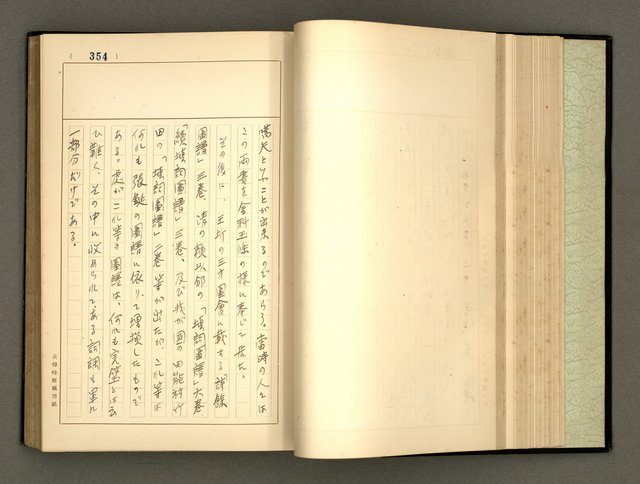 ( 354 )
嚆矢と云ふことが出来るのであらう。当時の人々は
この両書を金科玉條の様に奉じて居た。
その後に、王圻の三才圖會に載する「詩餘
圖譜」三巻、清の頼以邠の「塡詞圖譜」六巻
「續塡詞圖譜」三巻、及び我が国の田能村竹
田の「塡詞圖譜」二巻等が出たが、これ等は
何れも張綖の圖譜に依りて増損したもので
ある。處がこれ等の圖譜は、何れも完璧とは云
ひ難く、その中に収められてある詞調も単に
一部分だけである。